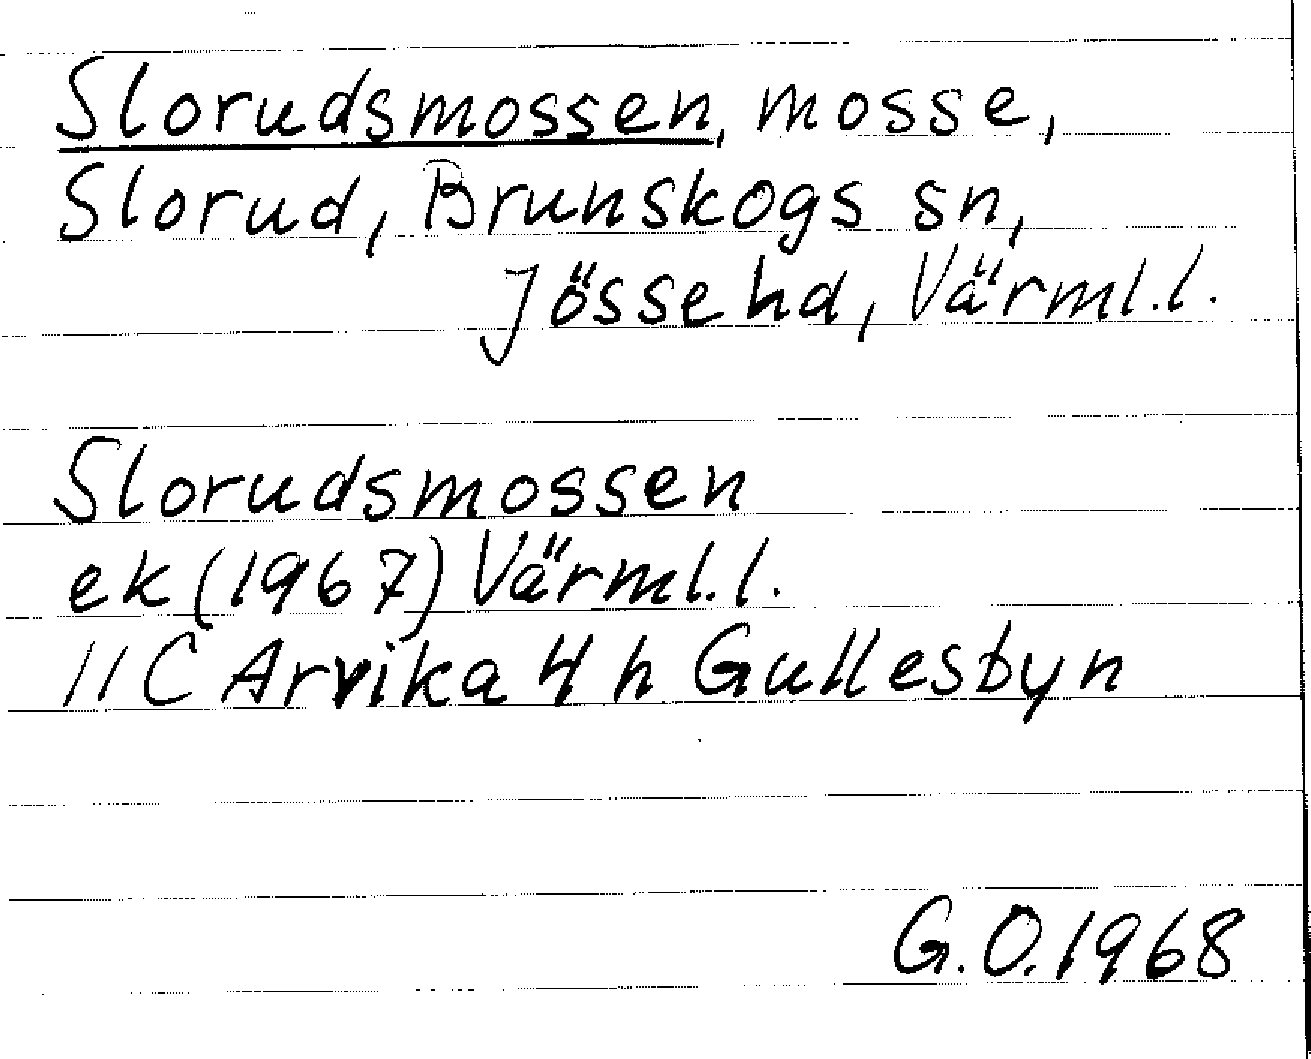 Slorudsmossen, mosse,
Slorud, Brunskogs sn,
Jösse hd, Värml.l.
Slorudsmossen
ek (1967) Värml.l.
11C Arvika 4h Gullesbyn
G.O.1968